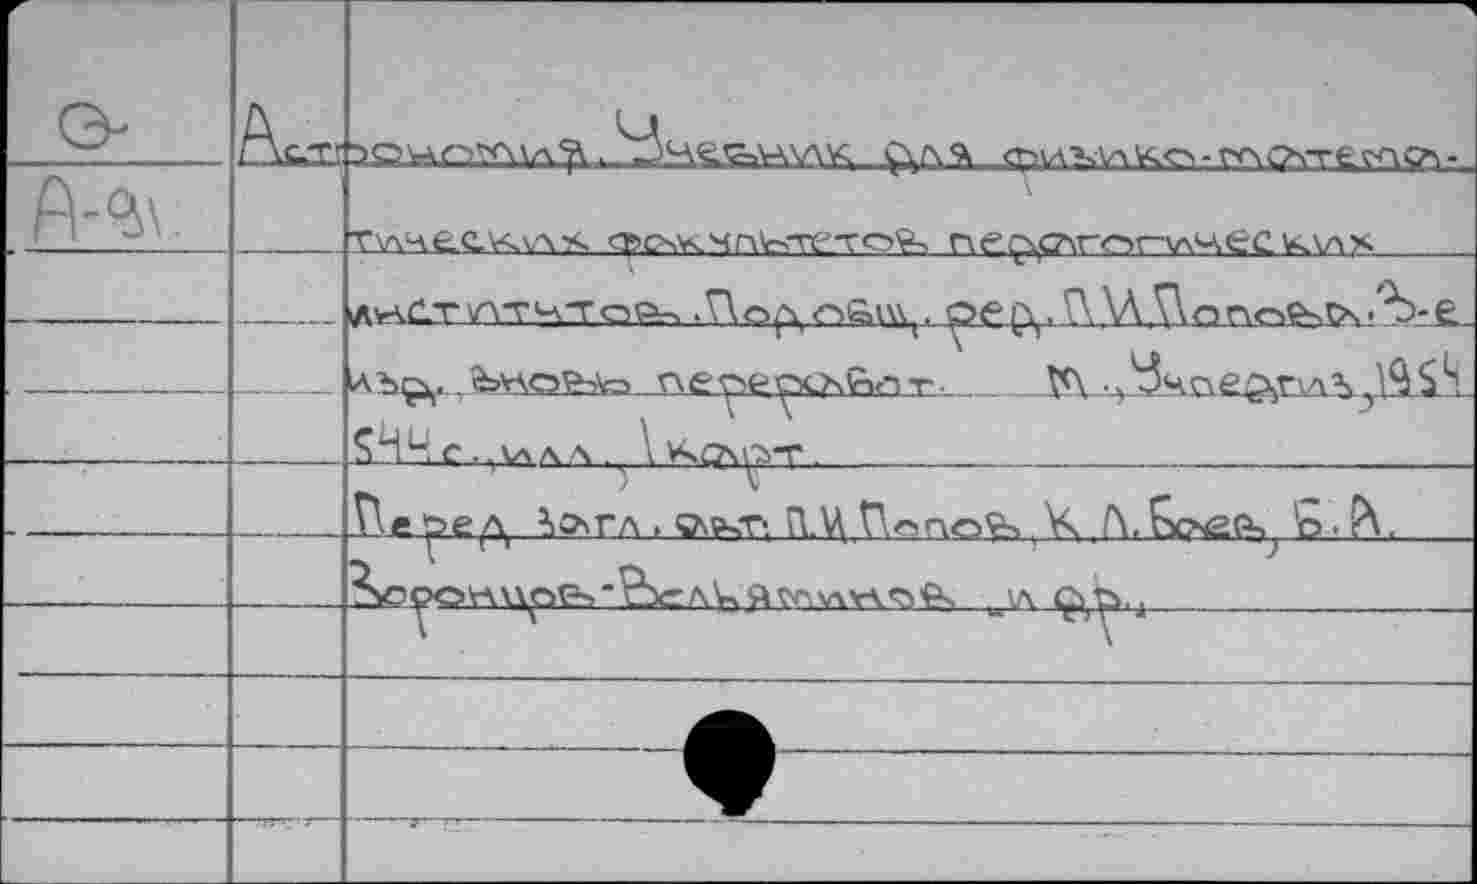 Э-
А-91.
Астрономия. Учебник для физико-матема-
тических факультетов педагогических
институтов. Под общ. ред. П.И.Попова. 3-е
изд., вновь переработ. М., Учпедгиз, 1954
544 с., илл., 1 карт.
Перед загл. авт: П.И.Попов, К.Л.Баев, Б.А.
Воронцов-Вельяминов и др.